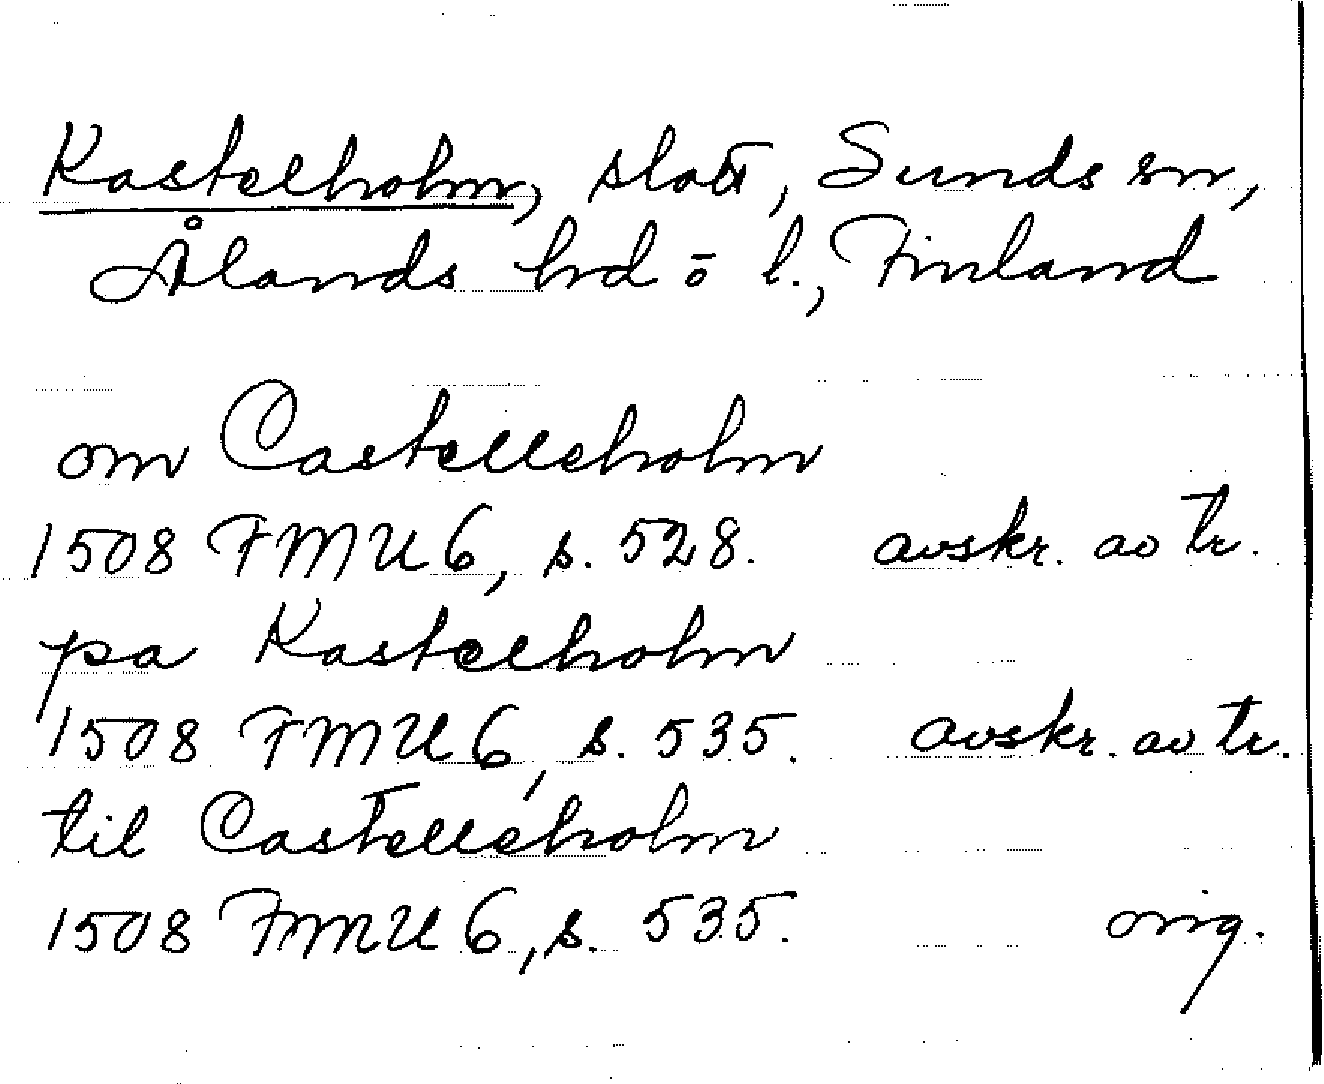 Kastelholm, slott, Sunds sn,
Ålands hd o l., Finland
om Castelleholm
1508 FMU 6, s. 528. avskr. av tr.
pa Kastelholm
1508 FMU 6, s. 535. avskr. av tr.
til Castelleholm
1508 FMU 6, s. 535. orig.